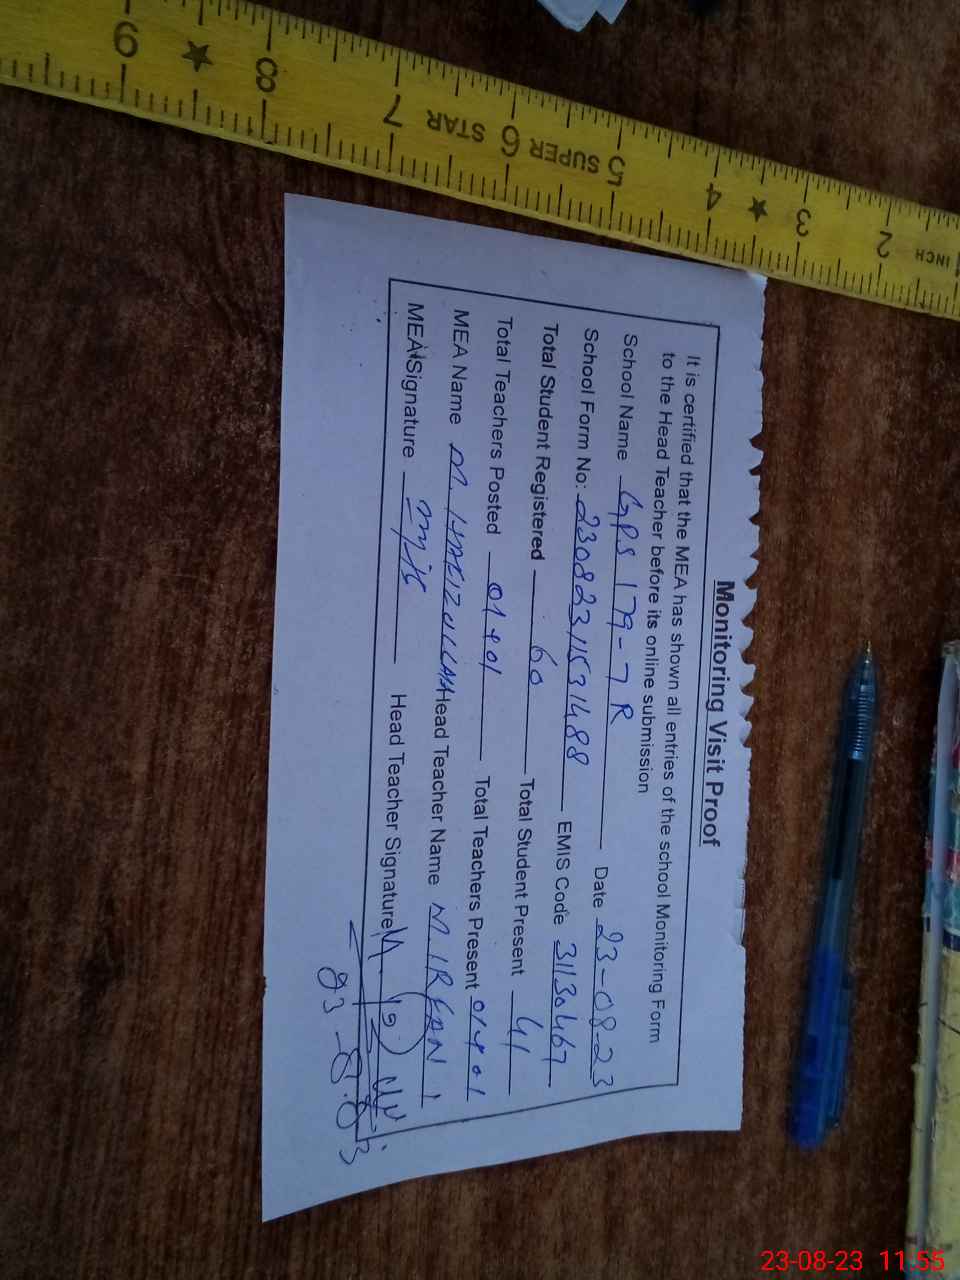 Monitoring Visit Proof
It is certified that the MEA has shown all entries of the school Monitoring Form
to the Head Teacher before its online submission
School Name GPS 179-7R Date 23-08-23
School Form No: 23082311531488 EMIS Code 31130467
Total Student Registered 60 Total Student Present 41
Total Teachers Posted 01+01 Total Teachers Present 01+01
MEA Name M. HAFIZULLAH Head Teacher Name M. IRFAN
MEA Signature Head Teacher Signature
INCH 2 3 4 5 6 7 8 9
SUPER STAR
23-08-23 11:55